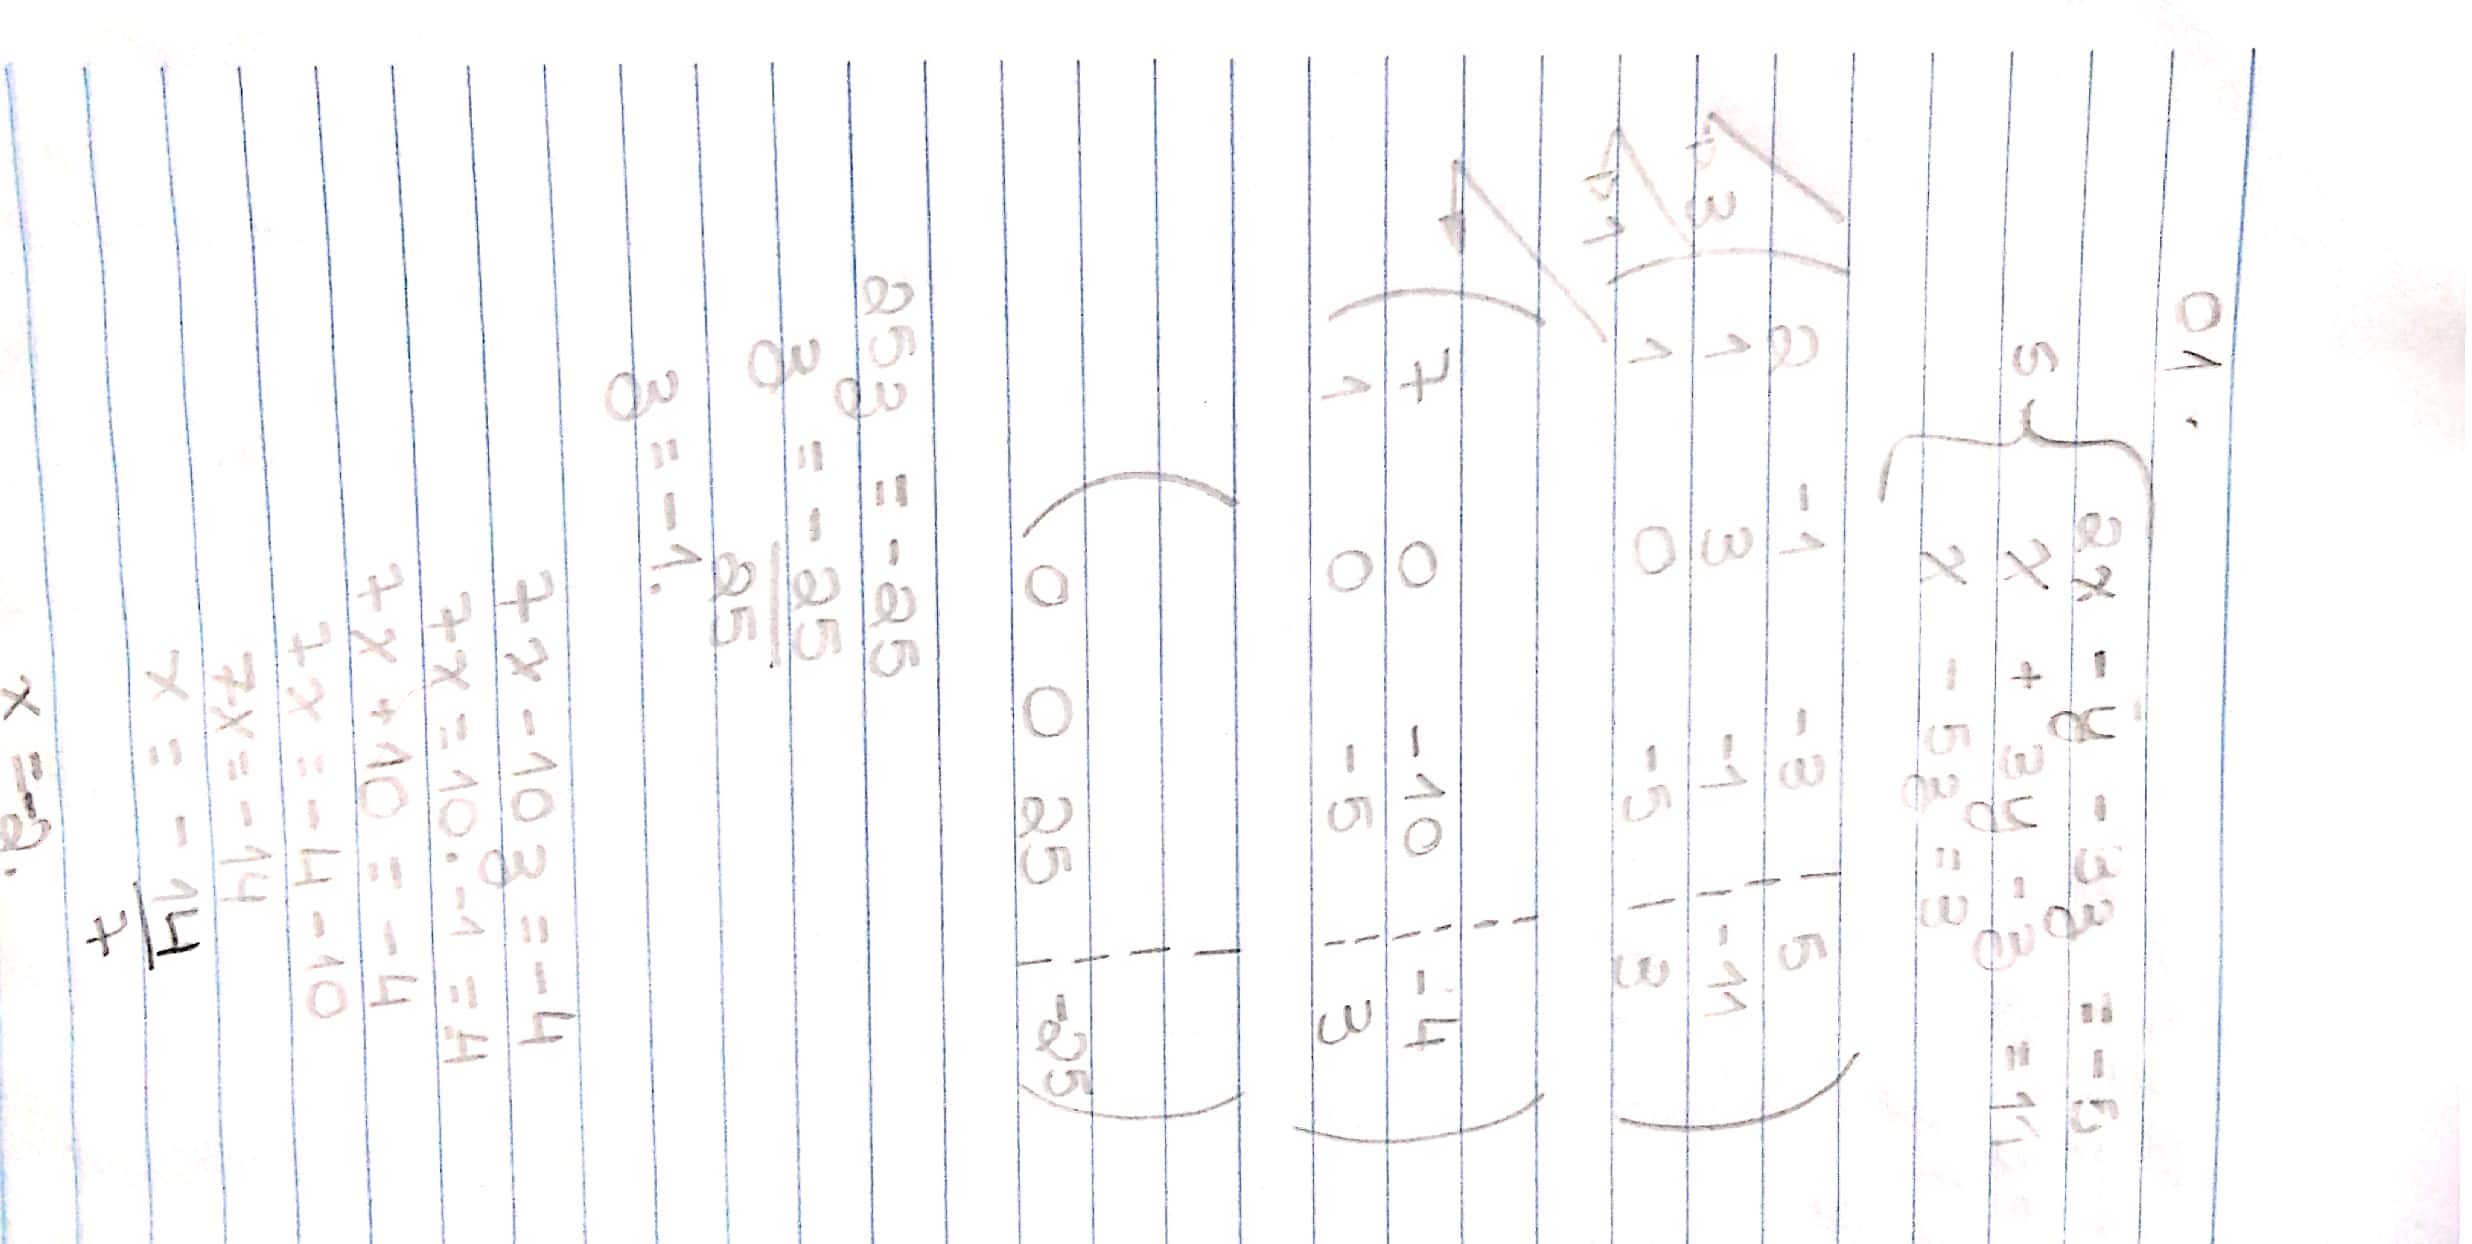 01.
2x - y - 3z = -5
S { x + 3y - z = 11
x - 5z = 3
2 -1 -3 | 5
3 ( 1 3 -1 | -11 )
1 1 0 -5 | 3
( 7 0 -10 | -4 )
1 0 -5 | 3
( 0 0 25 | -25 )
25z = -25
z = -25
25
z = -1.
7x - 10z = -4
7x = 10. -1 = 4
7x + 10 = -4
7x = -4 -10
7x = -14
x = -14
7
x = -2.